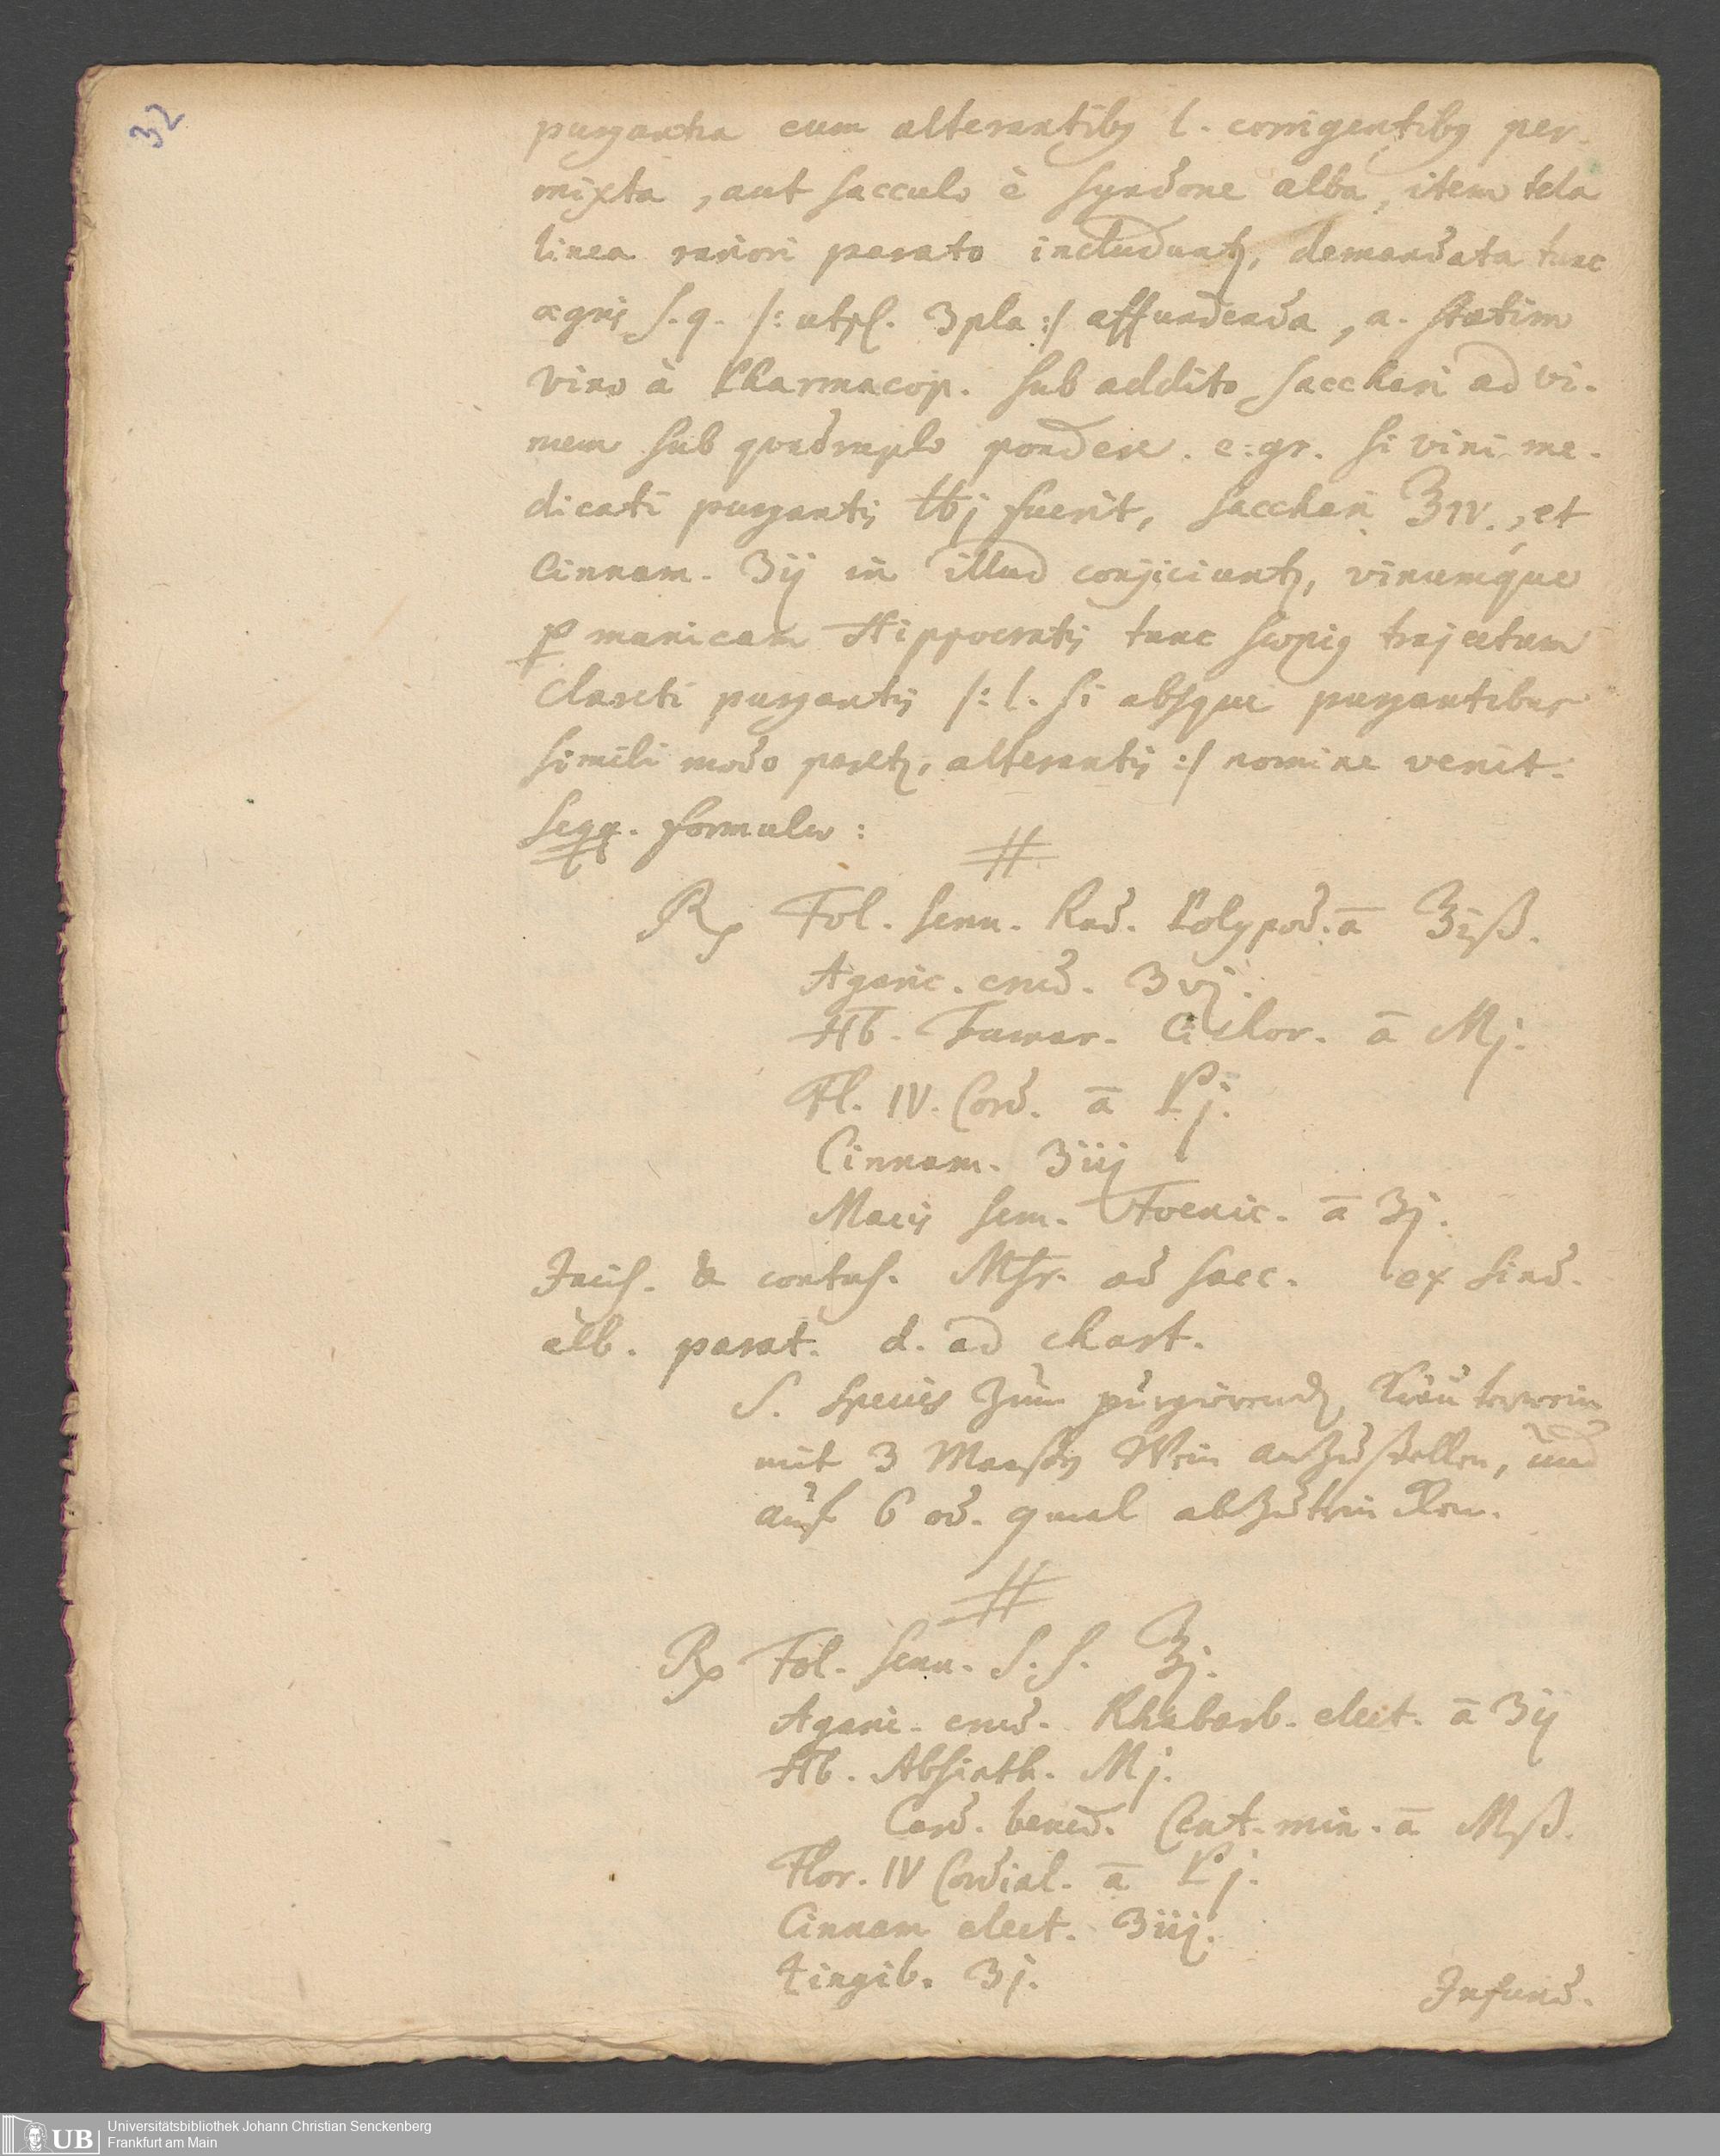 32
purgantia cum alterantibq l. corrigentibq per-
mixta, aut sacculo è syndone alba, item tela
linea rariori parato includuntʒ, demandata tunc
ægris s.q. /: utpl. 3pla :/ affundenda, a. statim
vino à Pharmacop. sub addito sacchari ad vi-
num sub quadruplo pondere. e:gr. si vini me-
dicati purgantis ℔j fuerit, sacchari ℥IV., et
Cinnam. ʒij in illud conjiciuntʒ, vinumque
ꝑ manicam Hippocratis tunc sæpiq trajectum
Clareti purgantis /: l. si absque purgantibus
simili modo paretʒ, alterantis :/ nomine venit.
Seqq. formulæ:
#
℞ Fol. senn. Rad. Polypod. ā ℥iß.
Agaric. crud. ʒvj.
Hb. Fumar. Cichor. ā Mj.
Fl. IV. Cord. ā Pj.
Cinnam. ʒiij
Macis sem. Foenic. ā ʒj.
Incis. & contus. Msr. ad sacc. ex sind.
alb. parat. d. ad chart.
S. Species zum purgirendʒ Kräuterwein
mit 3 Maaßen Wein anzustellen, und
auf 6 od. 9mal abzutrinken.
#
℞ Fol. senn. s. s. ℥j.
Agaric. crud. Rhabarb. elect. ā ʒij
Hb. Absinth. Mj.
Card. bened. Cent. min. ā Mß.
Flor. IV Cordial. ā Pj.
Cinnam elect. ʒiij.
Zingib. ʒj.
Infund.
UB
Universitätsbibliothek Johann Christian Senckenberg
Frankfurt am Main